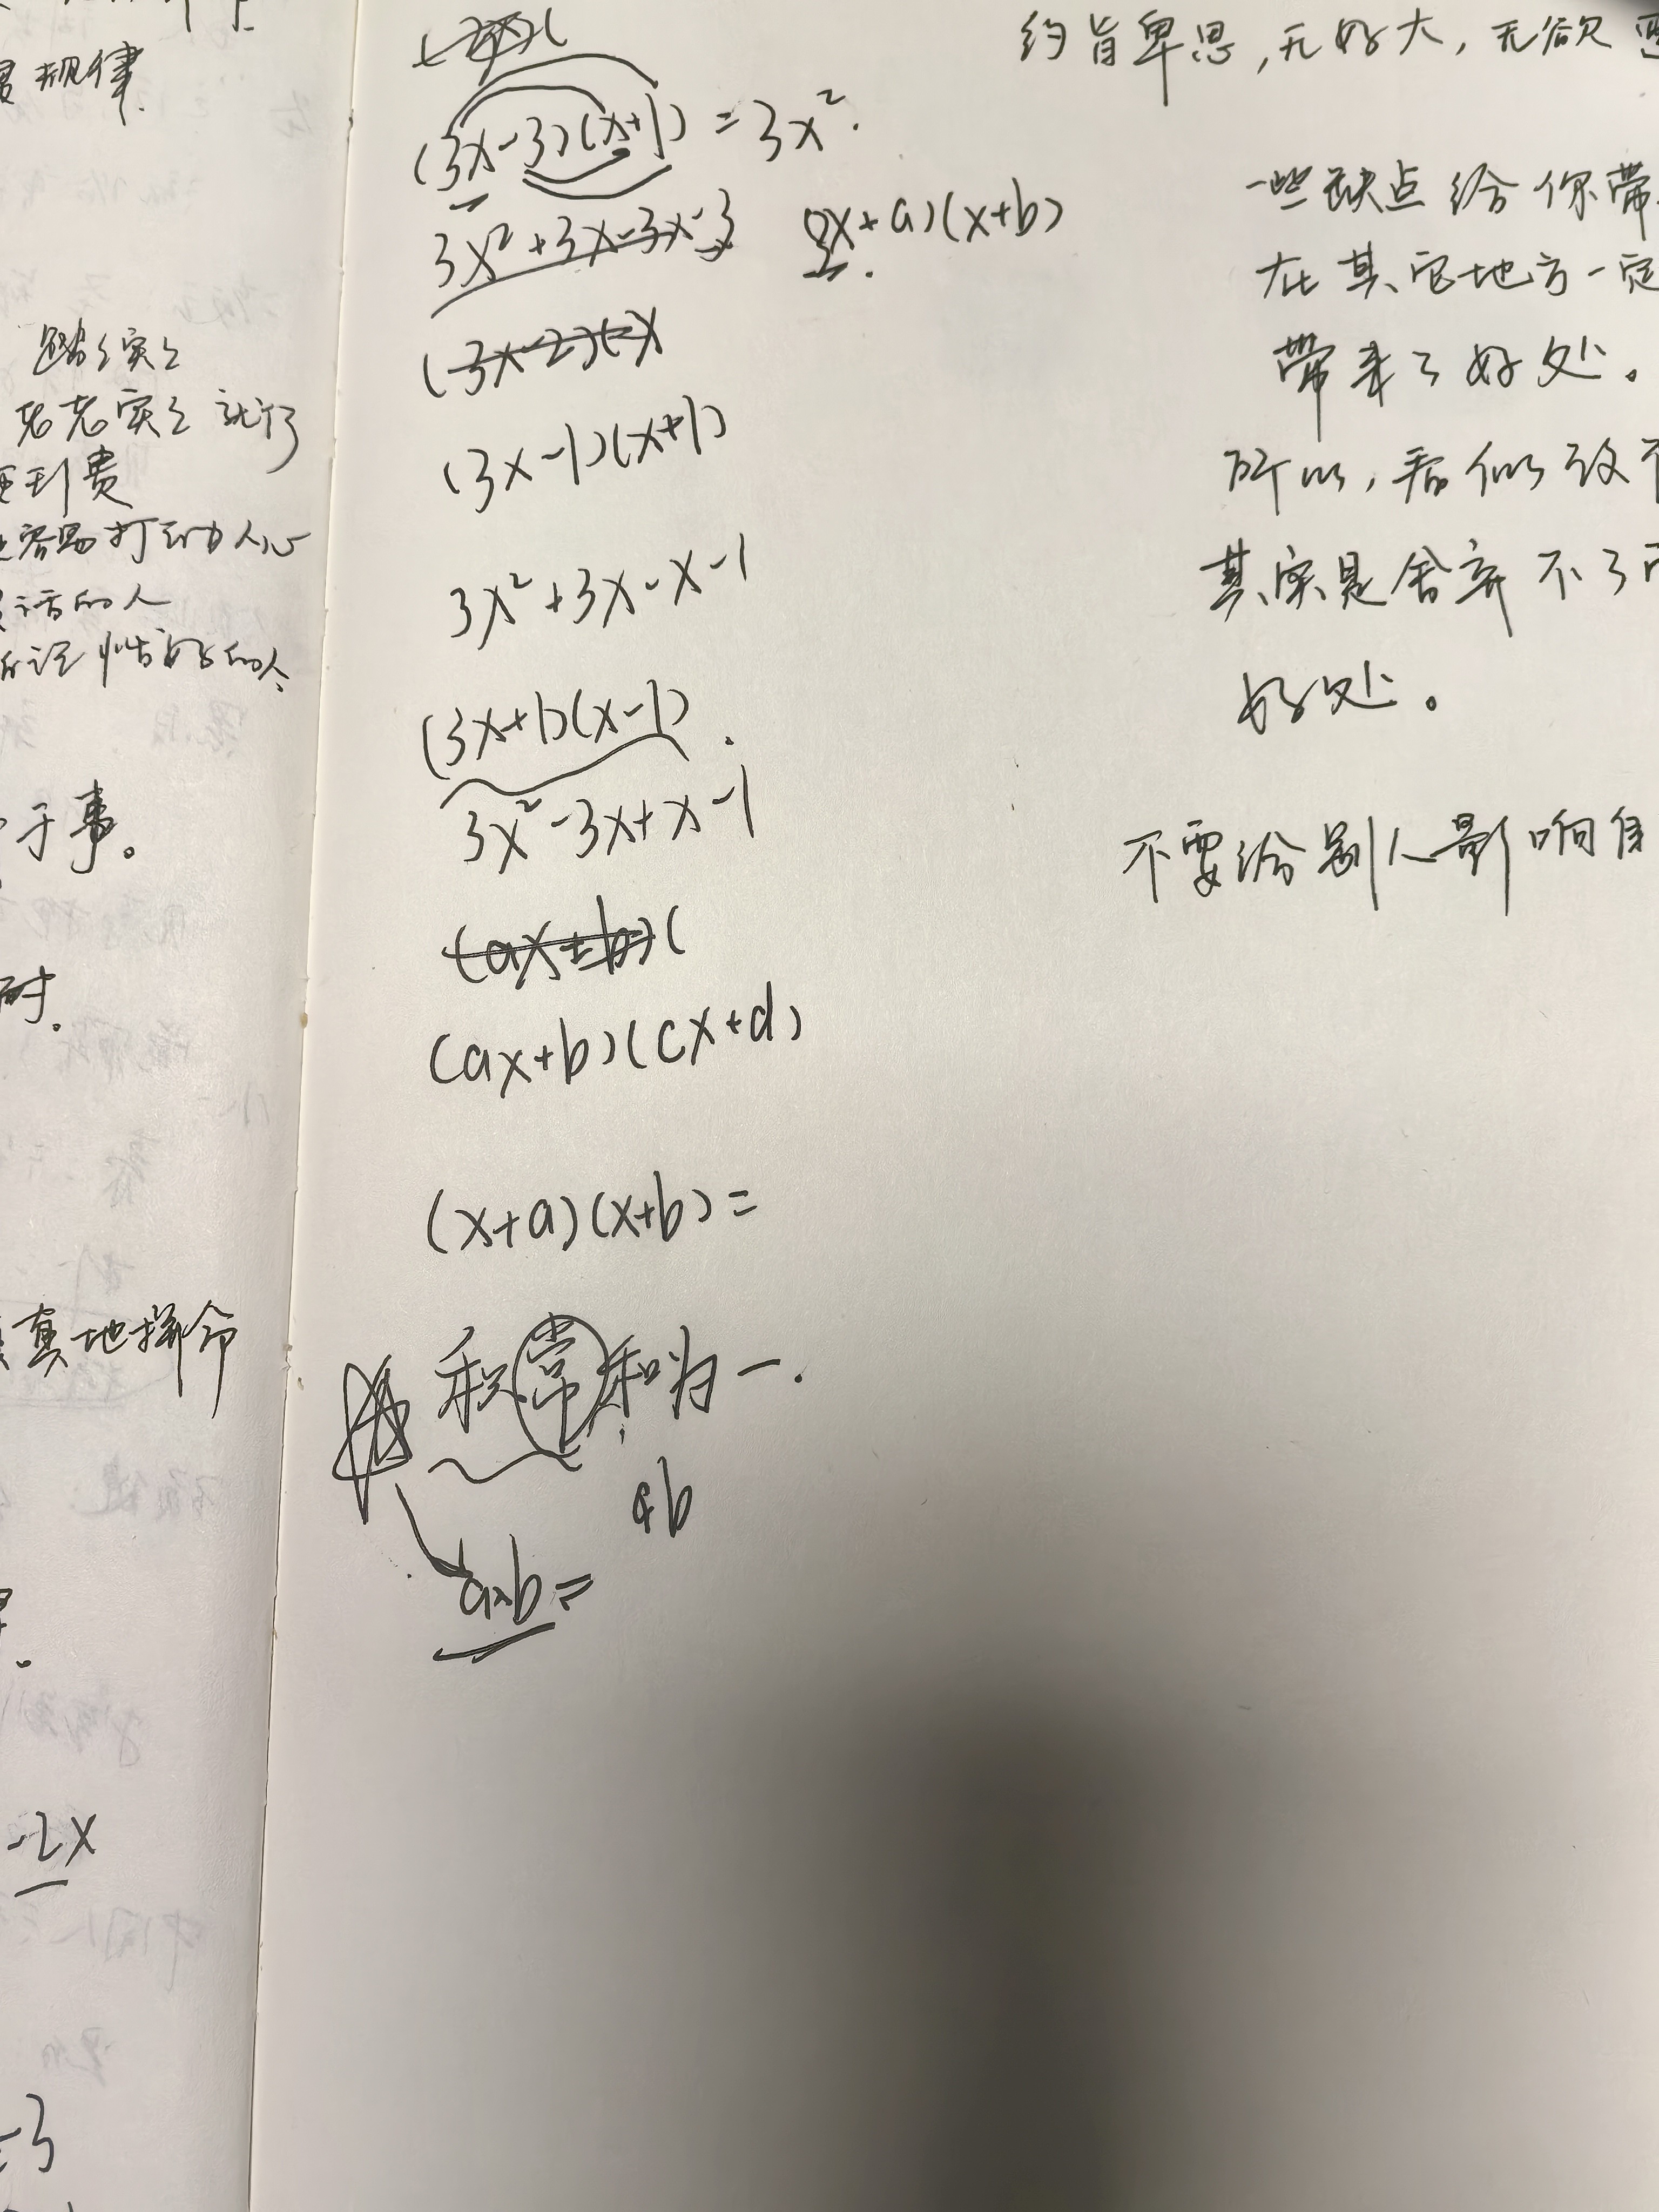 规律.
踏々实々
老老实々就行了
到贵
容易打动人心
话的人
记性好的人
于事。
时.
真地拼命
-2x
-3
(3x-3)(x+1)=3x².
3x²+3x-3x-3
3x+a)(x+b)
(3x-2)(x
(3x-1)(x+1)
3x²+3x-x-1
(3x+1)(x-1).
3x²-3x+x-1
(ax+b)(
(ax+b)(cx+d)
(x+a)(x+b)=
积常和为一.
ab
a·b=
约旨卑思,无好大,无欲
一些缺点给你带
在其它地方一定
带来了好处。
所以,看似改不
其实是舍弃不了
好处。
不要给别人影响自